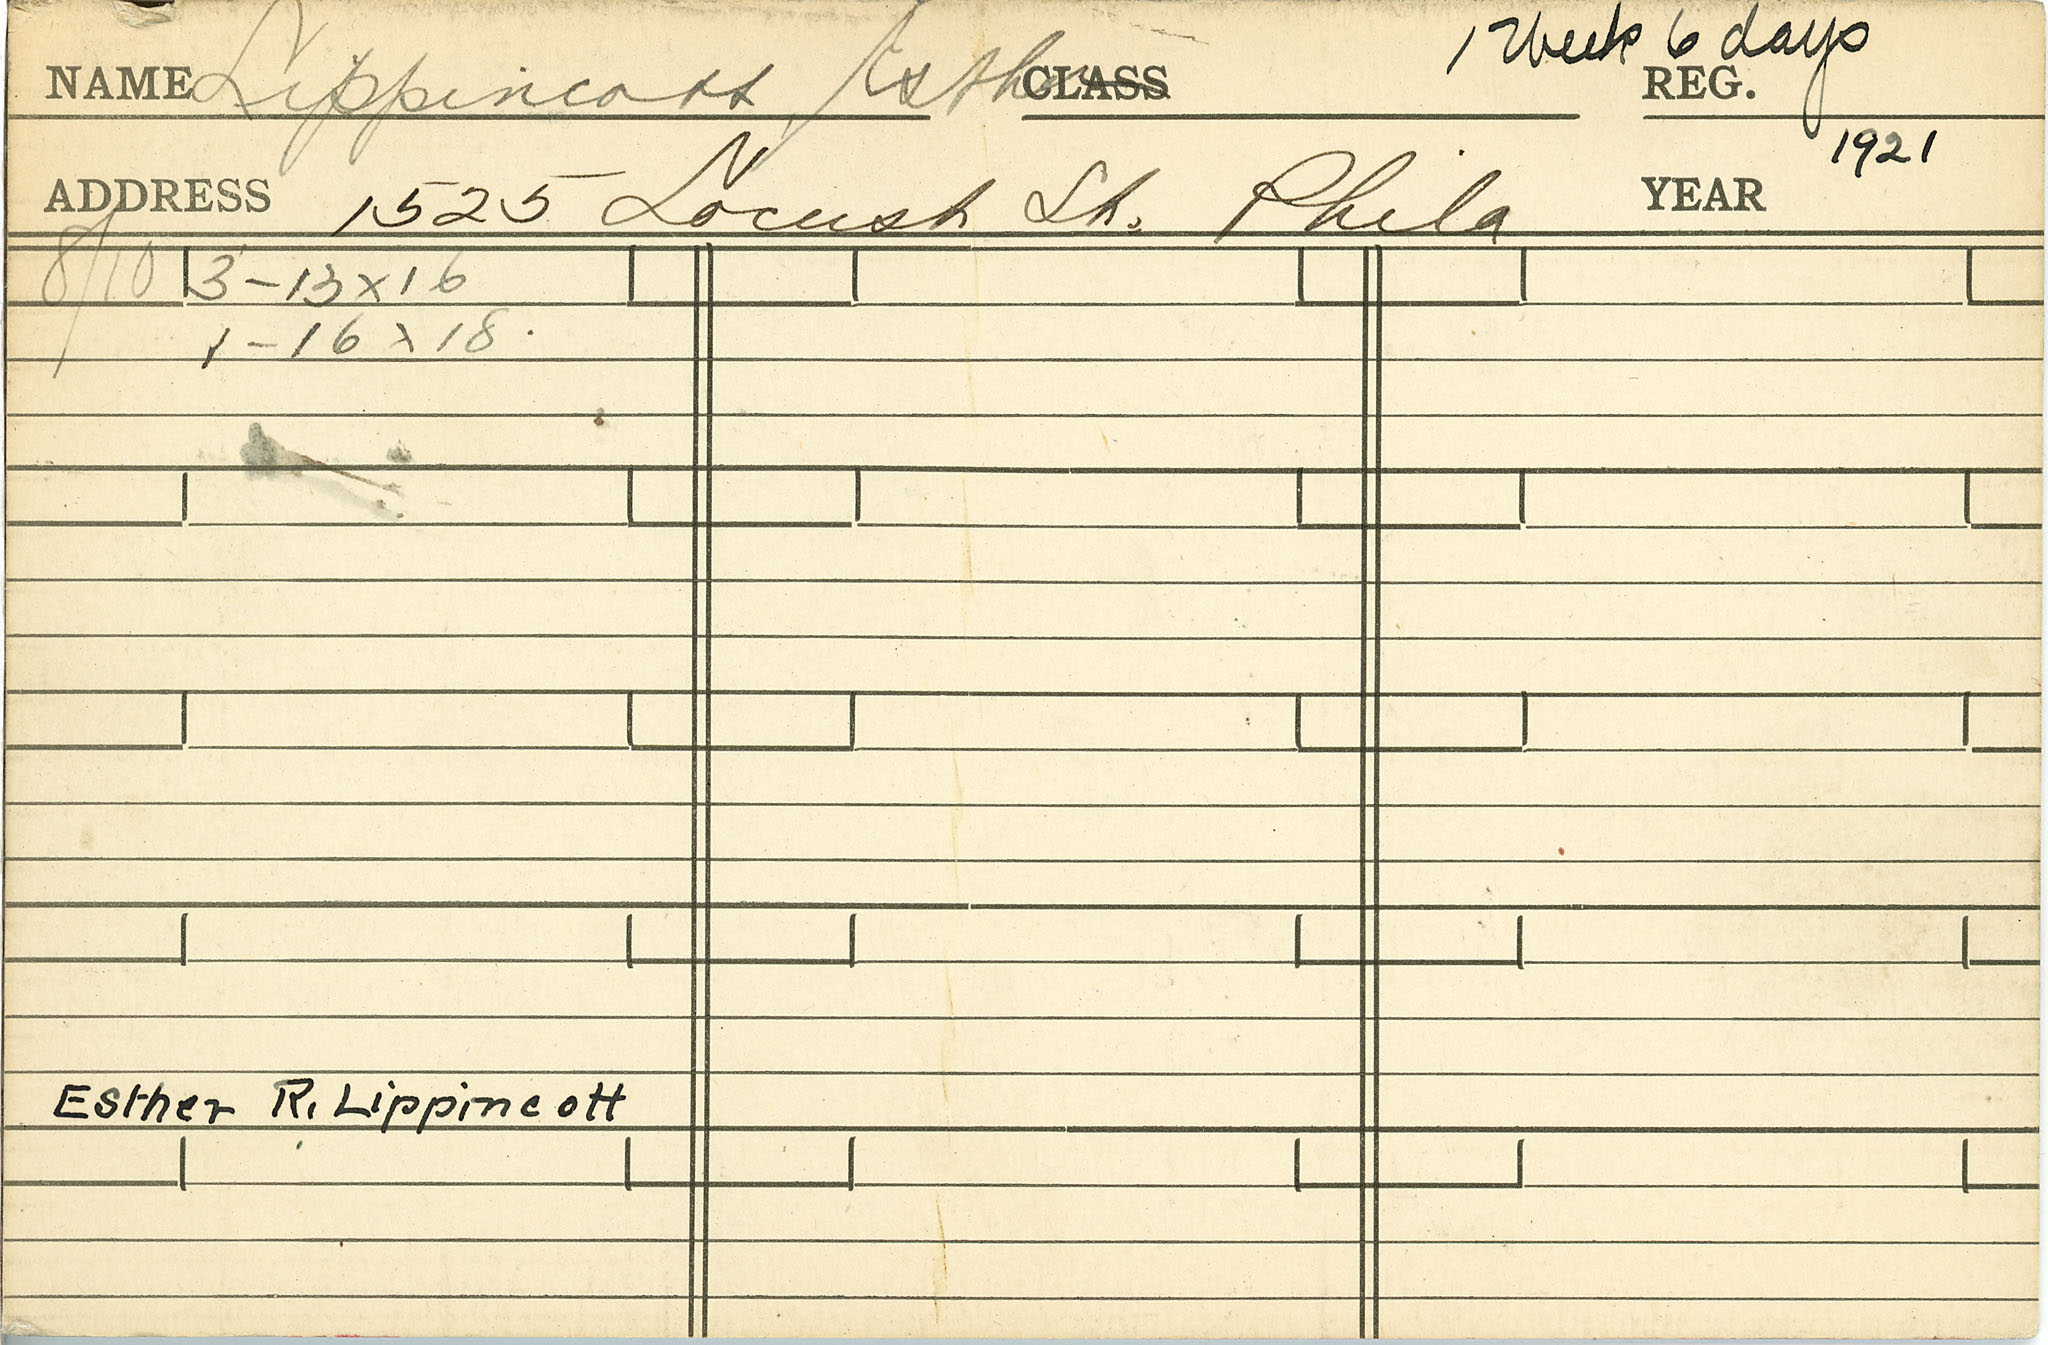 NAME Lippincott, Esther CLASS 1 Week 6 days REG.
ADDRESS 1525 Locust St. Phila YEAR 1921
8/10 3-13x16
1-16x18.
Esther R. Lippincott